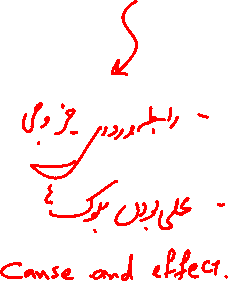 - رابطه ورودی خروجی
- علی بودن بلوک
Cause and effect.